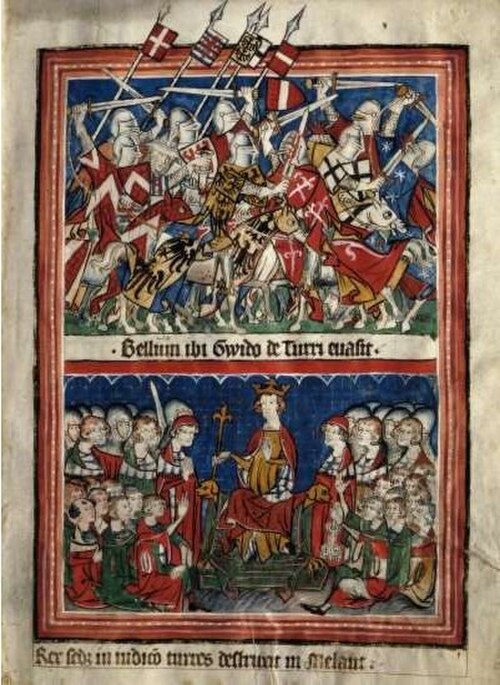 · Bellum ibi Gwido de Turri euasit ·
Rex sedz in iudicō turres destruxit in Melant ·